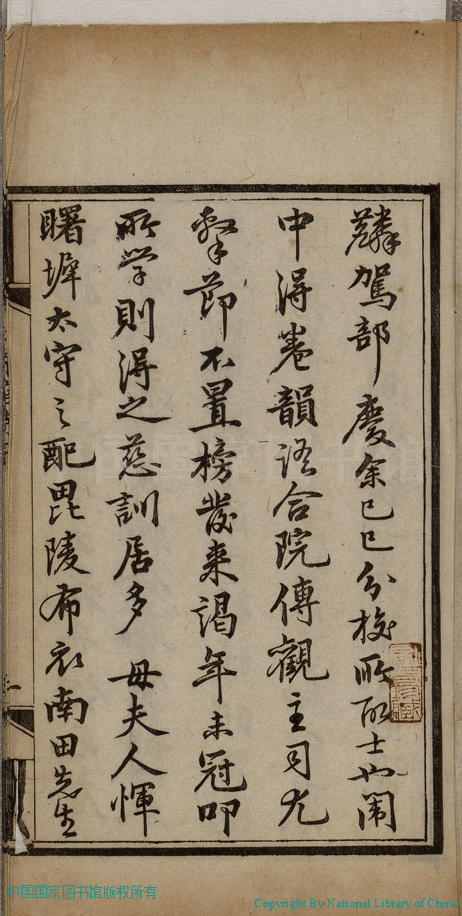 麟駕部慶余己巳分校所取士也闈
中得卷韻語合院傳觀主司尤
擊節不置榜發来謁年未冠叩
所學則得之慈訓居多 母夫人惲
曙墀太守之配毘陵布衣南田先生
中国国家图书馆版权所有
Copyright By National Library of China